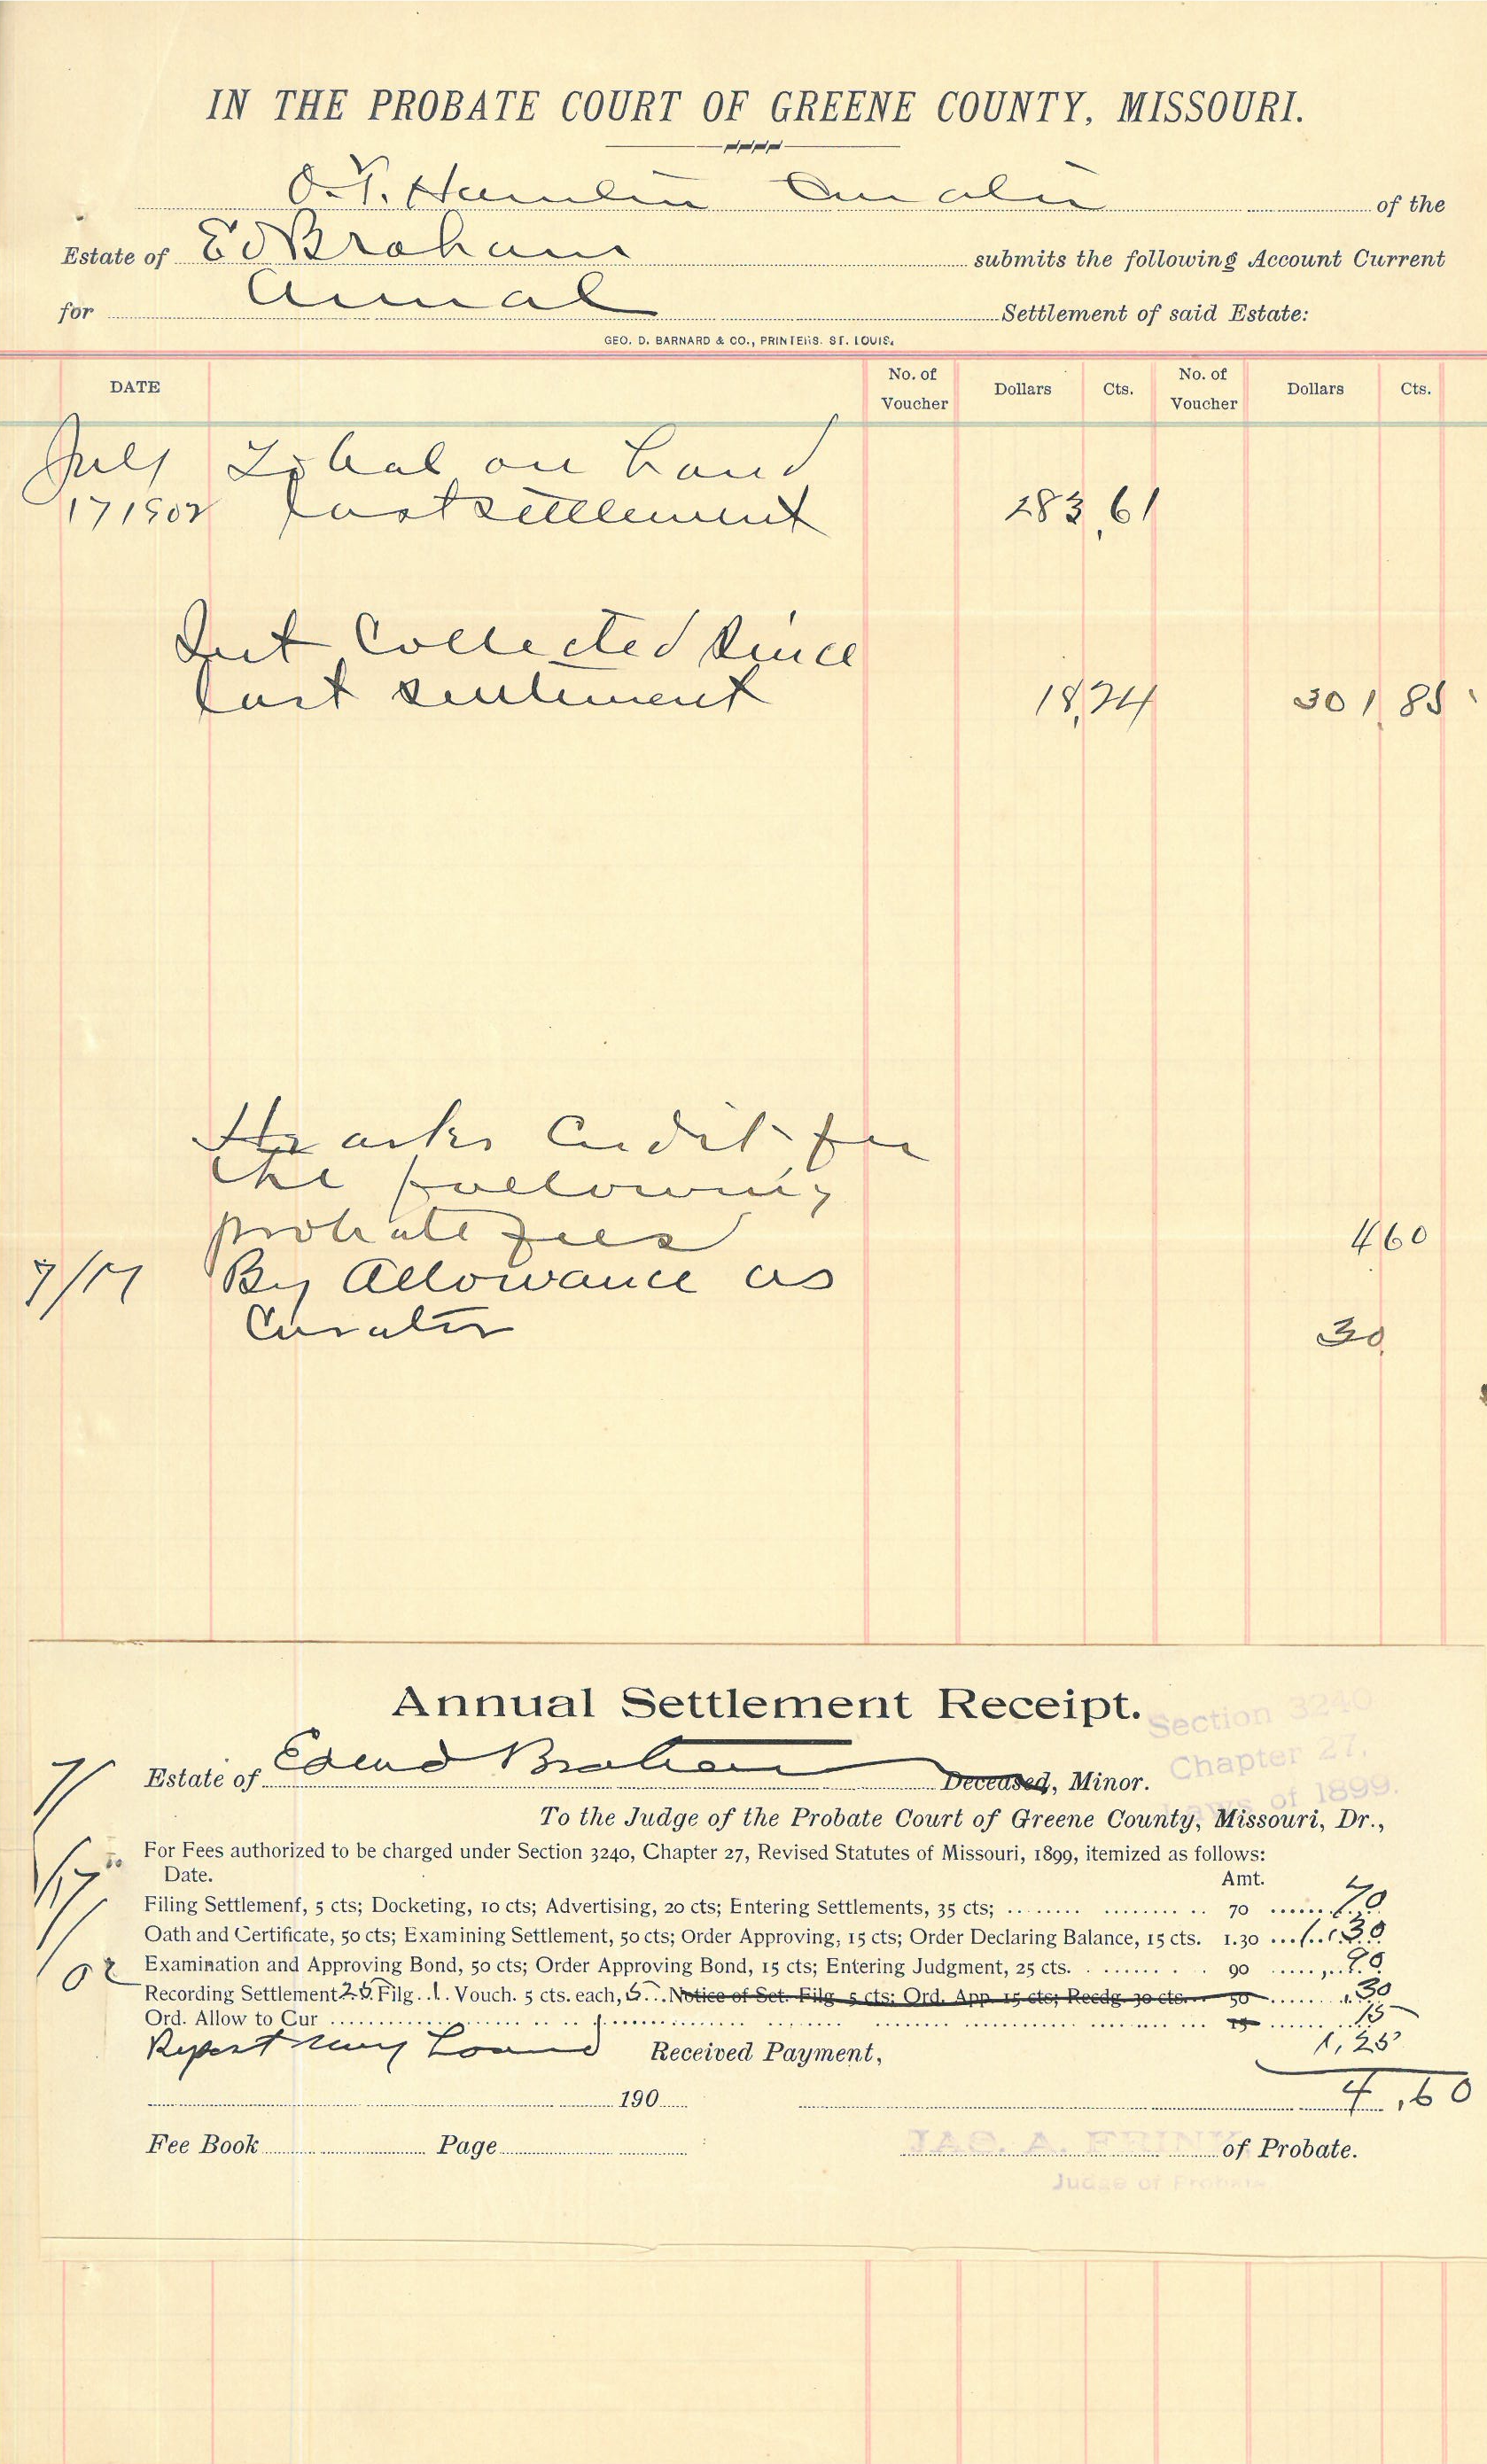 IN THE PROBATE COURT OF GREENE COUNTY, MISSOURI.
O. T. Hamlin Curator of the
Estate of Ed Braham submits the following Account Current
for Annual Settlement of said Estate:
GEO. D. BARNARD & CO., PRINTERS. ST. LOUIS.
DATE No. of Voucher Dollars Cts. No. of Voucher Dollars Cts.
July To bal on hand
17 1902 last settlement 283.61
Int Collected since
last settlement 18.24 301.85
He asks Credit for
the following
probate fees 4 60
7/17 By Allowance as
Curator 30.
Annual Settlement Receipt.
Section 3240
Chapter 27,
Laws of 1899.
Estate of Edmd Braham Deceased, Minor.
To the Judge of the Probate Court of Greene County, Missouri, Dr.,
7/17/02
For Fees authorized to be charged under Section 3240, Chapter 27, Revised Statutes of Missouri, 1899, itemized as follows:
Date. Amt.
Filing Settlement, 5 cts; Docketing, 10 cts; Advertising, 20 cts; Entering Settlements, 35 cts; 70 70
Oath and Certificate, 50 cts; Examining Settlement, 50 cts; Order Approving, 15 cts; Order Declaring Balance, 15 cts. 1.30 1.30
Examination and Approving Bond, 50 cts; Order Approving Bond, 15 cts; Entering Judgment, 25 cts. 90 90
Recording Settlement 25 Filg. 1 Vouch. 5 cts. each, 5 Notice of Set. Filg. 5 cts; Ord. App. 15 cts; Recdg. 30 cts. 50 30
Ord. Allow to Cur 15 15
Report Loand 1,25
Received Payment,
4.60
190
Fee Book Page of Probate.
JAS. A. FRINK,
Judge of Probate